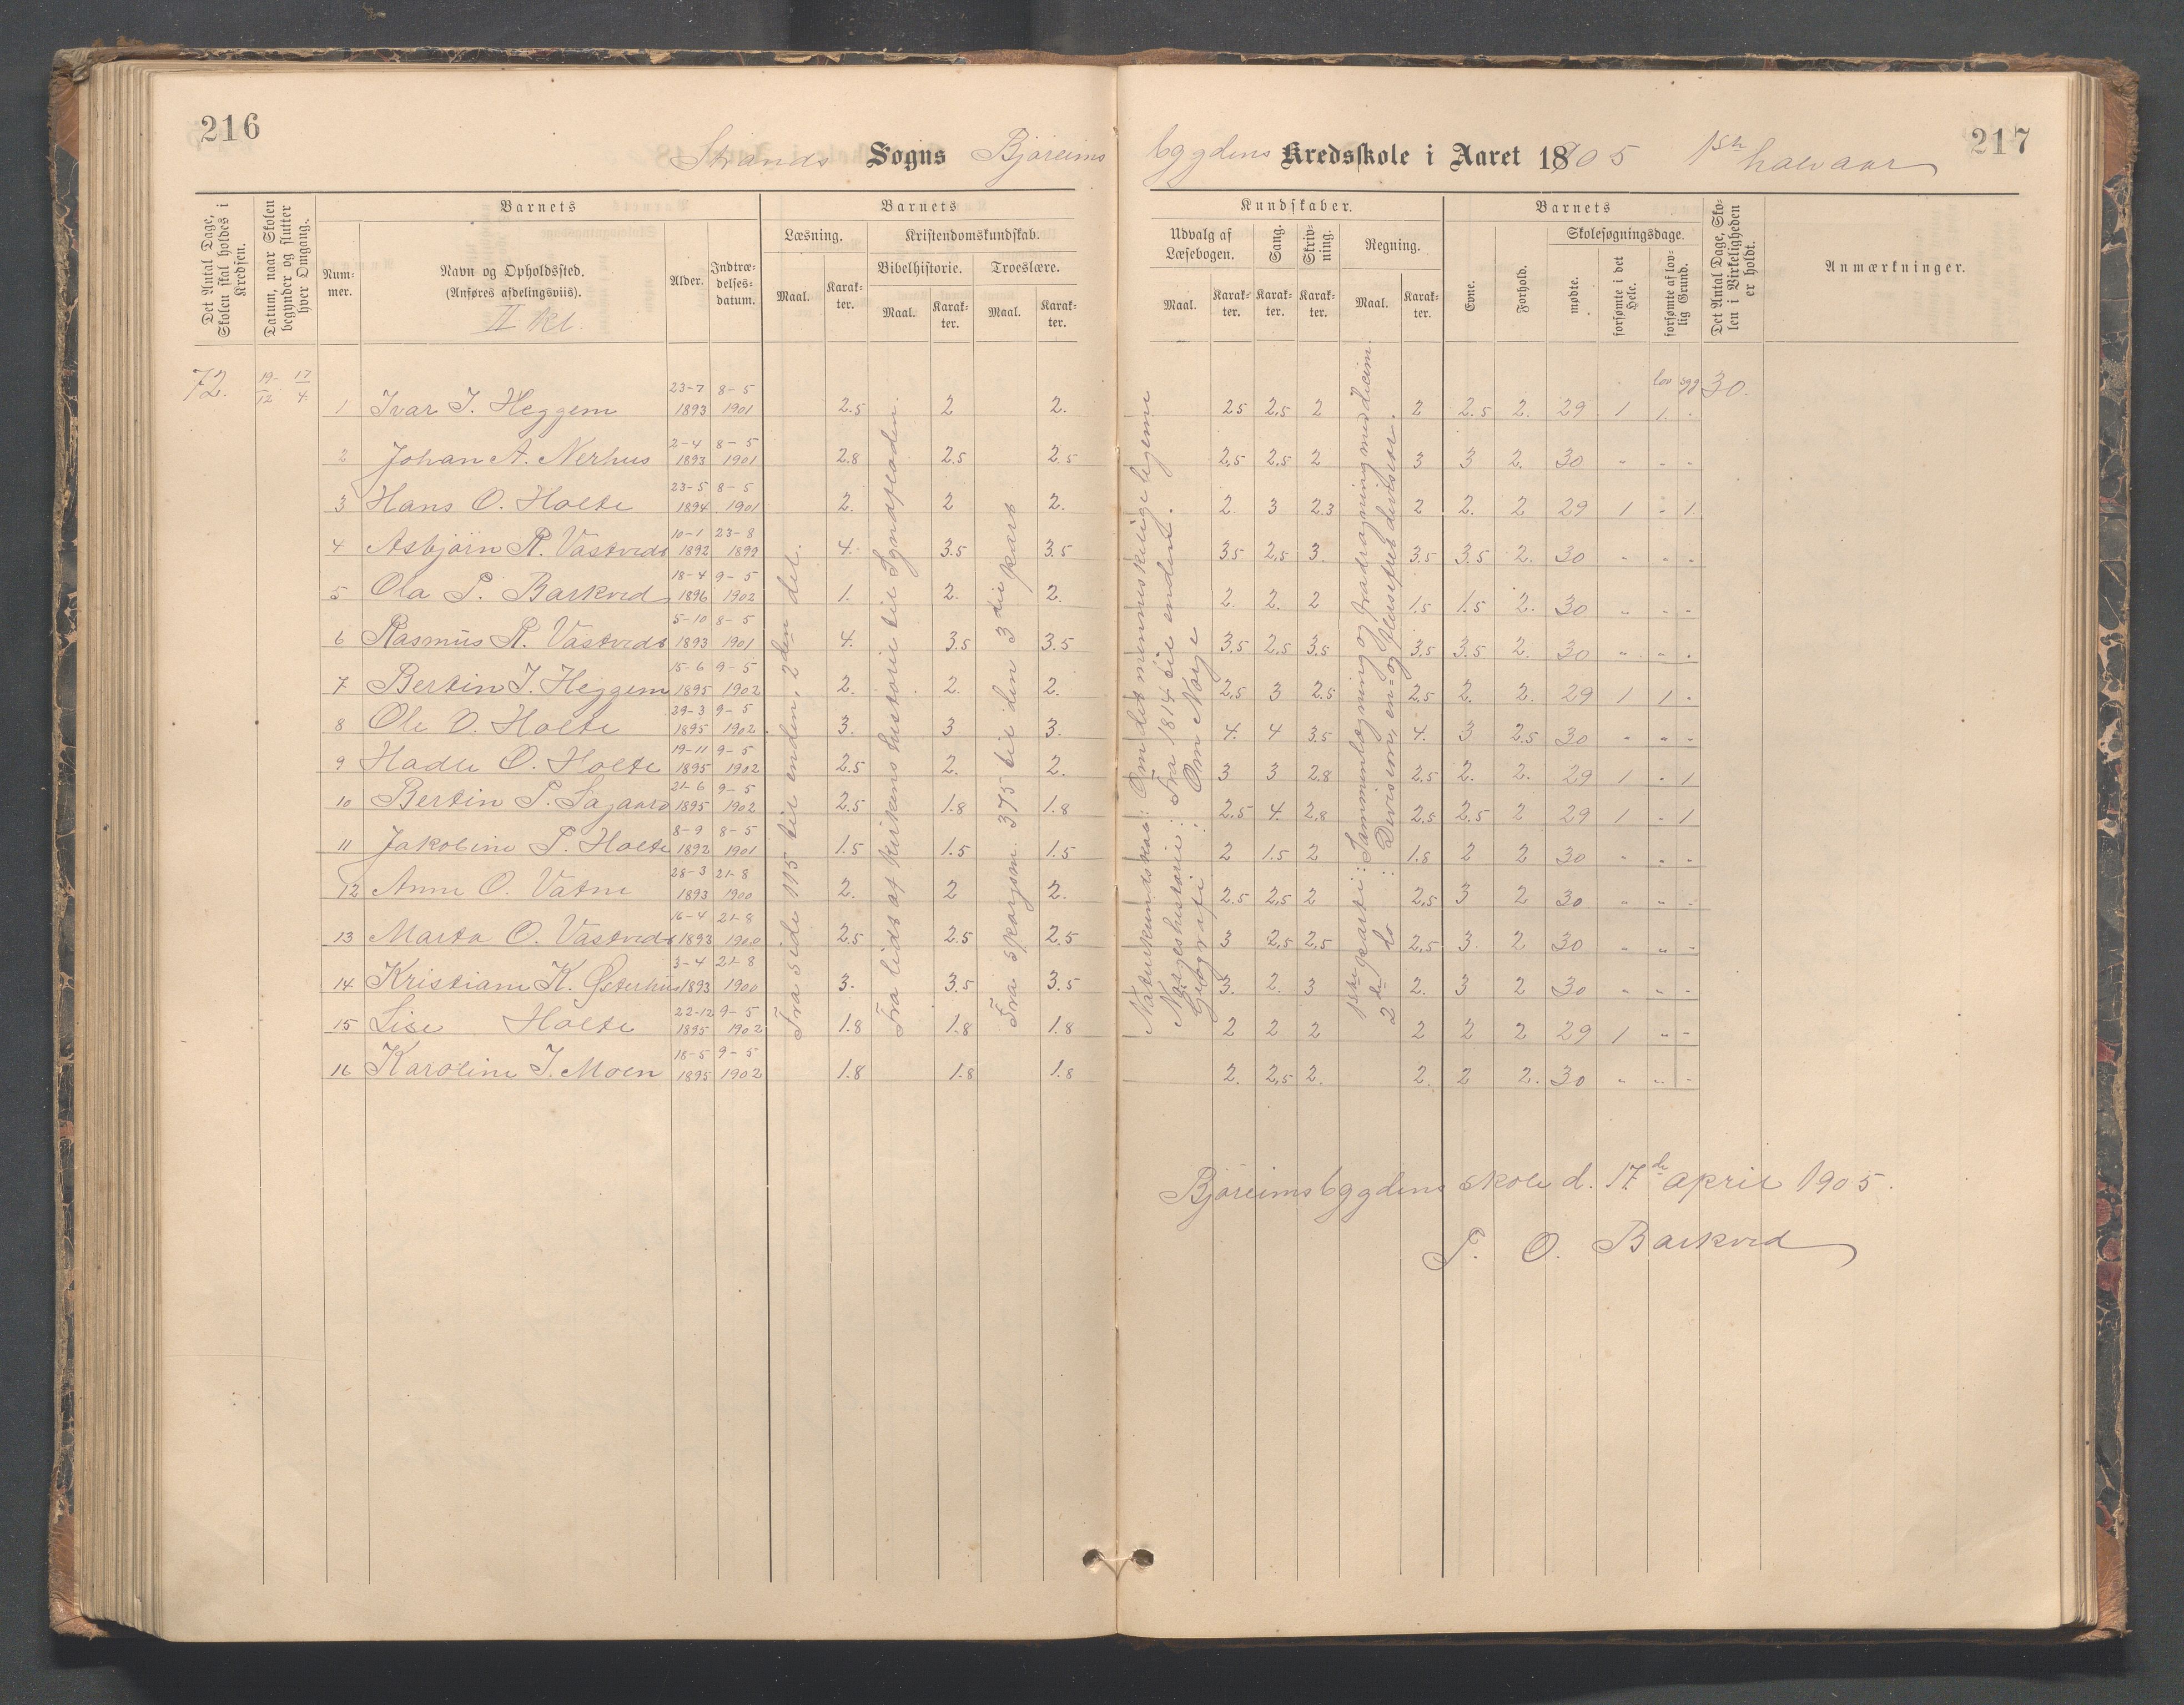 216
217
Strands Sogns Bjøreims bygdens Kredsskole i Aaret 1905 1ste halvaar
Det Antal Dage, Skolen skal holdes i Kredsen.
Datum, naar Skolen begynder og slutter hver Omgang.
Barnets
Nummer.
Navn og Opholdssted.
(Anføres afdelingsviis).
II kl.
Alder.
Indtrædelsesdatum.
Barnets
Læsning.
Maal.
Karakter.
Kristendomskundskab.
Bibelhistorie.
Maal.
Karakter.
Troeslære.
Maal.
Karakter.
Kundskaber.
Udvalg af Læsebogen.
Maal.
Karakter.
Sang.
Karakter.
Skrivning.
Karakter.
Regning.
Maal.
Karakter.
Barnets
Evne.
Forhold.
Skolesøgningsdage.
mødte.
forsømte i det Hele.
forsømte af lovlig Grund.
Det Antal Dage, Skolen i Virkeligheden er holdt.
Anmærkninger.
72. 19/12 17/4 lov syg 30.
1 Ivar I. Heggem 23-7 1893 8-5 1901 2.5 2 2. 2.5 2.5 2 2 2.5 2. 29 1 1. -
2 Johan A. Nerhus 2-4 1893 8-5 1901 2.8 2.5 2.5 2.5 2.5 2 3 3 2. 30 " - -
3 Hans O. Holte 23-5 1894 8-5 1901 2. 2 2. 2 3 2.3 2 2. 2 29 1 - 1.
4 Asbjørn R. Vastveds 10-1 1892 23-8 1899 4. 3.5 3.5 3.5 2.5 3. 3.5 3.5 2. 30 " - -
5 Ola P. Barkved 18-4 1896 9-5 1902 1. 2. 2. 2. 2. 2 1.5 1.5 2. 30 " - -
6 Rasmus R. Vastveds 5-10 1893 8-5 1901 4. 3.5 3.5 3.5 2.5 3.5 3.5 3.5 2. 30 " - -
7 Bertin I. Heggem 15-6 1895 9-5 1902 2. 2. 2. 2.5 3 2.5 2.5 2. 2. 29 1 1 -
8 Ole O. Holte 29-3 1895 9-5 1902 3. 3 3. 4. 4 3.5 4. 3 2.5 30 " " -
9 Hadle O. Holte 19-11 1895 9-5 1902 2.5 2. 2. 3 3 2.8 2.5 2. 2. 29 1 - 1
10 Bertin P. Sagaard 21-6 1895 9-5 1902 2.5 1.8 1.8 2.5 4. 2.8 2.5 2.5 2 29 1 - 1
11 Jakobine P. Holte 8-9 1892 8-5 1901 1.5 1.5 1.5 2 1.5 2 1.5 2 2 30 " " -
12 Anne O. Vatne 28-3 1893 21-8 1900 2. 2 2. 2.5 2.5 2 2.5 3 2 30 " " -
13 Marta O. Vastveds 16-4 1893 21-8 1900 2.5 2.5 2.5 3 2.5 2.5 2.5 3. 2 30 " " -
14 Kristiane K. Østerhus 3-4 1893 21-8 1900 3. 3.5 3.5 3. 2. 3 2. 3 2 30 " " -
15 Lise Holte 22-12 1895 9-5 1902 1.8 1.8 1.8 2 2 2 2 2 2 29 1 " -
16 Karoline I. Moen 18-5 1895 9-5 1902 1.8 1.8 1.8 2. 2.5 2. 2. 2 2. 30 " " -
Fra side 115 til enden, 2den del.
Fra tidsaf kirkens historie til
Fra spørgsm. 375 til den 3die part
Naturkundskab: Om det menneskelige legeme
Norgeshistorie: Fra 1814 til enden.
Geografi: Om Norge
1ste parti: Sammenlægning og fradragning med decim.
2de do : Devision, en- og fleresifret devisor.
Bjøreimsbygdens skole d. 17de april 1905.
T. O. Barkved